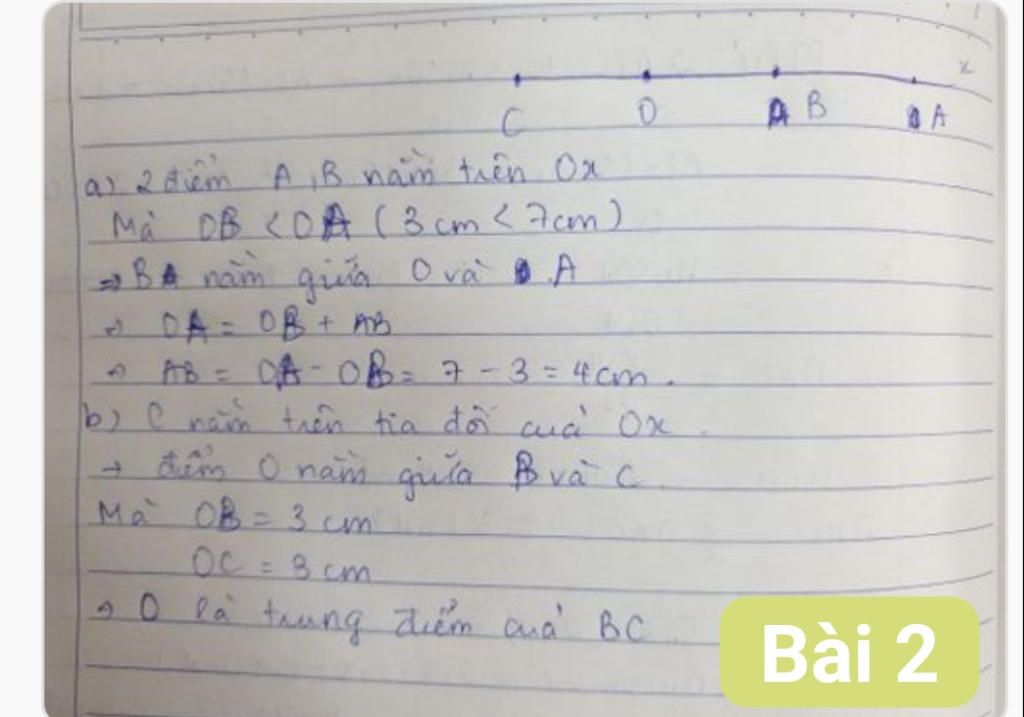 x
C O B A
a) 2 điểm A, B nằm trên Ox
Mà OB < OA (3 cm < 7cm)
⇒ B nằm giữa O và A
⇒ OA = OB + AB
⇒ AB = OA - OB = 7 - 3 = 4cm.
b) C nằm trên tia đối của Ox.
→ điểm O nằm giữa B và C.
Mà OB = 3 cm
OC = 3 cm
⇒ O là trung điểm của BC
Bài 2